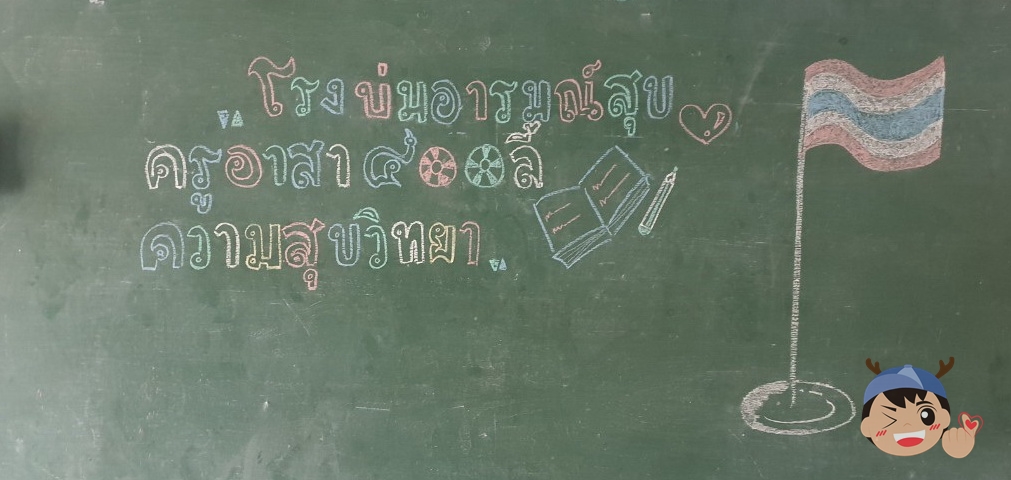 "โรงบ่มอารมณ์สุข
ครูอาสา ๔๐๐ลี้
ความสุขวิทยา"